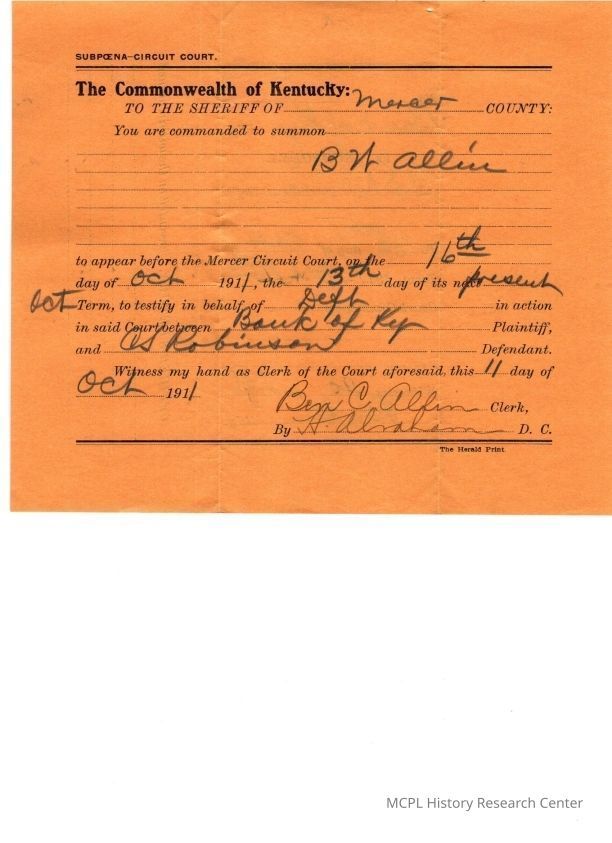 SUBPŒNA—CIRCUIT COURT.
The Commonwealth of Kentucky:
TO THE SHERIFF OF Mercer COUNTY:
You are commanded to summon
B W Allin
to appear before the Mercer Circuit Court, on the 16th
day of Oct 1911, the 13th day of its present
Oct Term, to testify in behalf of Deft in action
in said Court between Bank of Ky Plaintiff,
and CS Robinson Defendant.
Witness my hand as Clerk of the Court aforesaid, this 11 day of
Oct 1911
Ben C. Allin Clerk,
By H. Abraham D. C.
The Herald Print.
MCPL History Research Center